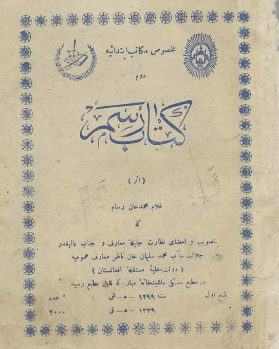 مخصوص مکاتب ابتدائیه
دوم
کتاب رسم
(از)
غلام محمد خان رسام
که
بتصویب و امضای نظارت جلیله معارف و جناب عالیقدر
جلالت مآب محمد سلیمان خان ناظر معارف عمومیه
(دولت علیه مستقله افغانستان)
در مطبع سنگی ماشینخانه مبارکه کابل بطبع رسید
طبع اول سنه ۱۲۹۹ ه ش
۱۳۳۹ ه ق
۲۰۰۰